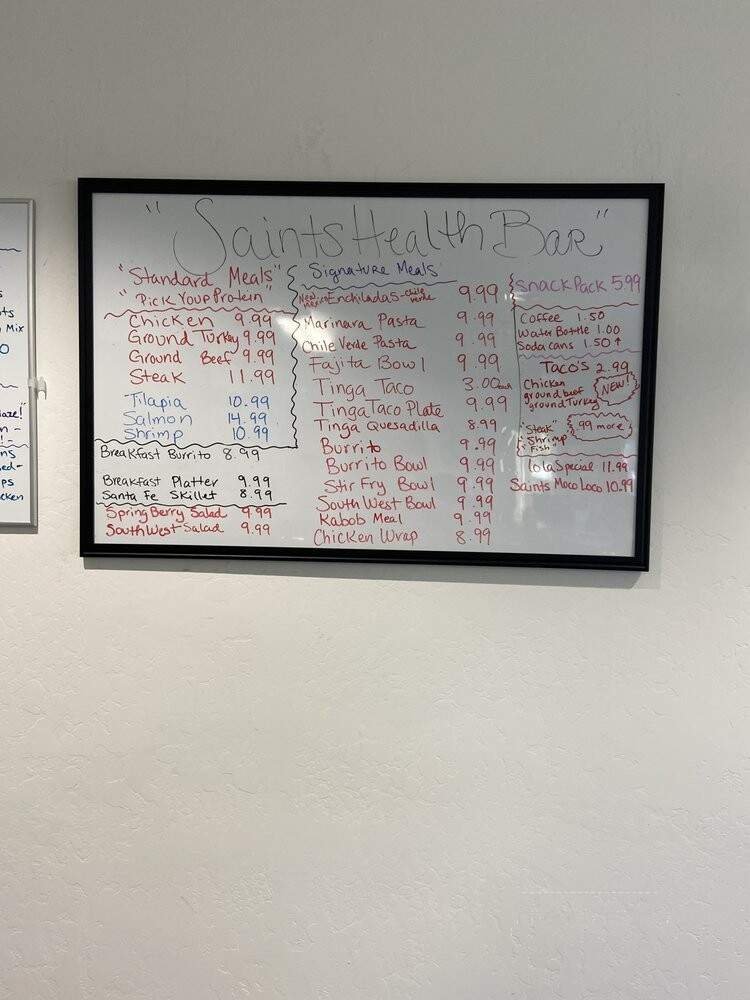 "Saints Health Bar"
"Standard Meals"
"Pick Your Protein"
Chicken 9.99
Ground Turkey 9.99
Ground Beef 9.99
Steak 11.99
Tilapia 10.99
Salmon 14.99
Shrimp 10.99
Breakfast Burrito 8.99
Breakfast Platter 9.99
Santa Fe Skillet 8.99
Spring Berry Salad 9.99
SouthWest Salad 9.99
Signature Meals
New Mexico Enchiladas-Chile Verde 9.99
Marinara Pasta 9.99
Chile Verde Pasta 9.99
Fajita Bowl 9.99
Tinga Taco 3.00each
Tinga Taco Plate 9.99
Tinga Quesadilla 8.99
Burrito 9.99
Burrito Bowl 9.99
Stir Fry Bowl 9.99
South West Bowl 9.99
Kabob Meal 9.99
Chicken Wrap 8.99
Snack Pack 5.99
Coffee 1.50
Water Bottle 1.00
Soda cans 1.50↑
Taco's 2.99
Chicken
ground beef
ground Turkey
NEW!
"Steak"
"Shrimp
Fish"
.99 more
Lola Special 11.99
Saints Moco Loco 10.99
Mix